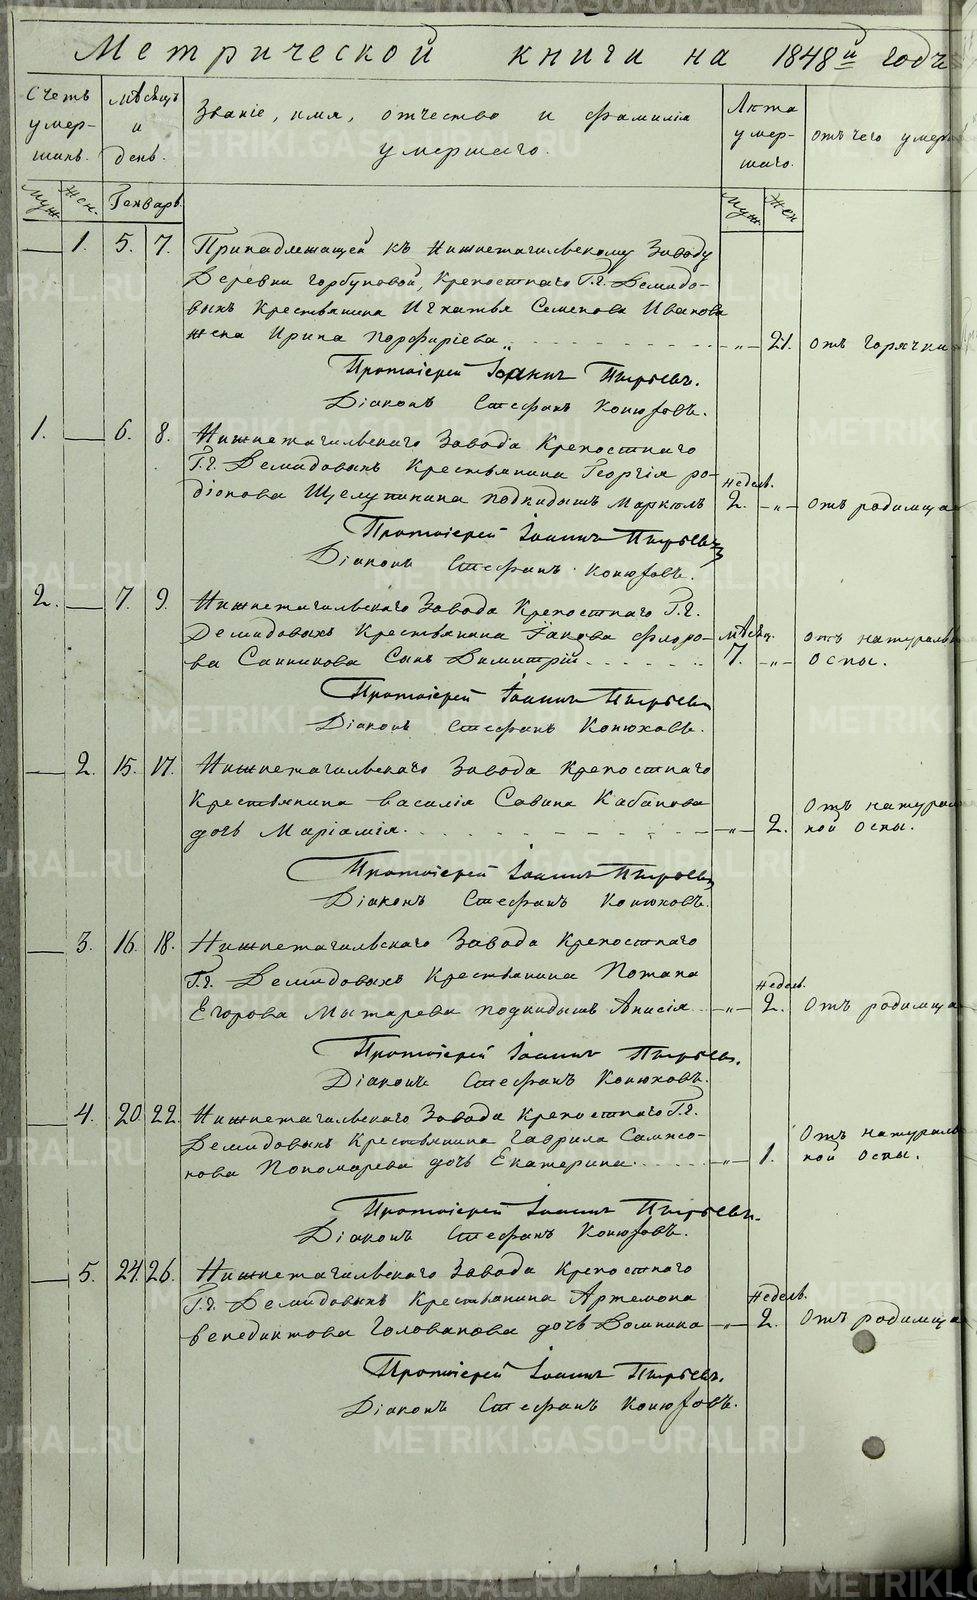 Метрической книги на 1848й годъ
Счетъ умер- шихъ. Мѣсяцъ и день. Званіе, имя, отчество и фамилія умершаго. Лѣта умер- шаго. отъ чего умеръ
Муж. Жен. Генварь. Муж. Жен
— 1. 5. 7. Принадлежащей къ Нижнетагильскому Заводу
Деревни Горбуновой, Крепостнаго Г.г. Демидо-
выхъ Крестьянина Игнатья Семенова Иванова
жена Ирина Порфиріева „ — „ — 21. отъ горячки
Протоіерей Іоаннъ Пырьевъ.
Діаконъ Стефанъ Конюховъ.
1. — 6. 8. Нижнетагильскаго Завода Крепостнаго
Г.г. Демидовыхъ Крестьянина Георгія ро-
діонова Щелупинина подкидышъ Маркелъ недел. 2. — „ — отъ родимца
Протоіерей Іоаннъ Пырьевъ
Діаконъ Стефанъ Конюховъ.
2. — 7. 9. Нижнетагильскаго Завода Крепостнаго Г.г.
Демидовыхъ Крестьянина Іакова Флоро-
ва Санникова Сынъ Димитрій мѣсяц. 7. — „ — отъ натураль
оспы.
Протоіерей Іоаннъ Пырьевъ
Діаконъ Стефанъ Конюховъ.
— 2. 15. 17. Нижнетагильскаго Завода Крепостнаго
Крестьянина Василія Савина Кабанова
дочь Маріамія. — „ — 2. Отъ натураль
ной оспы.
Протоіерей Іоаннъ Пырьевъ
Діаконъ Стефанъ Конюховъ.
— 3. 16. 18. Нижнетагильскаго Завода Крепостнаго
Г.г. Демидовыхъ Крестьянина Потапа
Егорова Мытарева подкидышъ Анисія — „ — недел. 2. Отъ родимца
Протоіерей Іоаннъ Пырьевъ.
Діаконъ Стефанъ Конюховъ.
— 4. 20 22. Нижнетагильскаго Завода Крепостнаго Г.г.
Демидовыхъ Крестьянина Гаврила Самсо-
нова Пономарева дочь Екатерина. — „ — 1. Отъ натураль
ной оспы.
Протоіерей Іоаннъ Пырьевъ.
Діаконъ Стефанъ Конюховъ.
— 5. 24. 26. Нижнетагильскаго Завода Крепостнаго
Г.г. Демидовыхъ Крестьянина Артемона
Венедиктова Голованова дочь Домника — „ — Недел. 2. Отъ родимца
Протоіерей Іоаннъ Пырьевъ.
Діаконъ Стефанъ Конюховъ.
METRIKI.GASO-URAL.RU